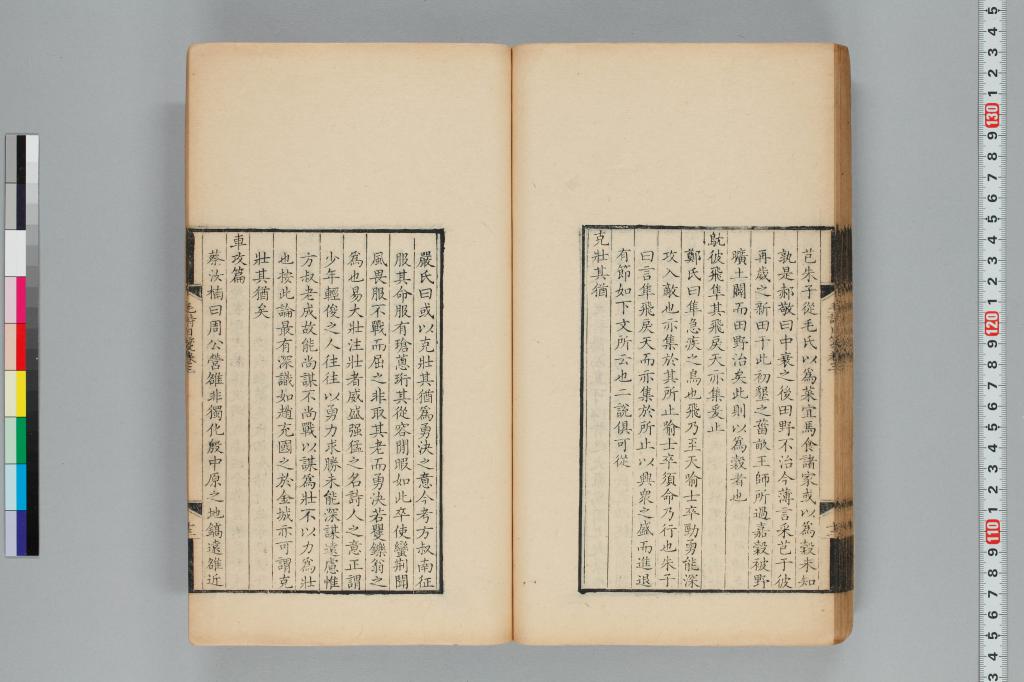 芑朱子從毛氏以爲菜宜馬食諸家或以爲穀未知
孰是郝敬曰中衰之後田野不治今薄言采芑于彼
再歲之新田于此初墾之菑畝王師所過嘉穀被野
曠土闢而田野治矣此則以爲穀者也
鴥彼飛隼其飛戾天亦集爰止
鄭氏曰隼急疾之鳥也飛乃至天喻士卒勁勇能深
攻入敵也亦集於其所止喻士卒須命乃行也朱子
曰言隼飛戾天而亦集於所止以興衆之盛而進退
有節如下文所云也二說俱可從
克壯其猶
嚴氏曰或以克壯其猶爲勇決之意今考方叔南征
服其命服有瑲蔥珩其從容閒暇如此卒使蠻荆聞
風畏服不戰而屈之非取其老而勇決若矍鑠翁之
爲也易大壯注壯者威盛强猛之名詩人之意正謂
少年輕俊之人往往以勇力求勝未能深謀遠慮惟
方叔老成故能尚謀不尚戰以謀爲壯不以力爲壯
也按此論最有深識如趙充國之於金城亦可謂克
壯其猶矣
車攻篇
蔡汝楠曰周公營雒非獨化殷中原之地鎬遠雒近